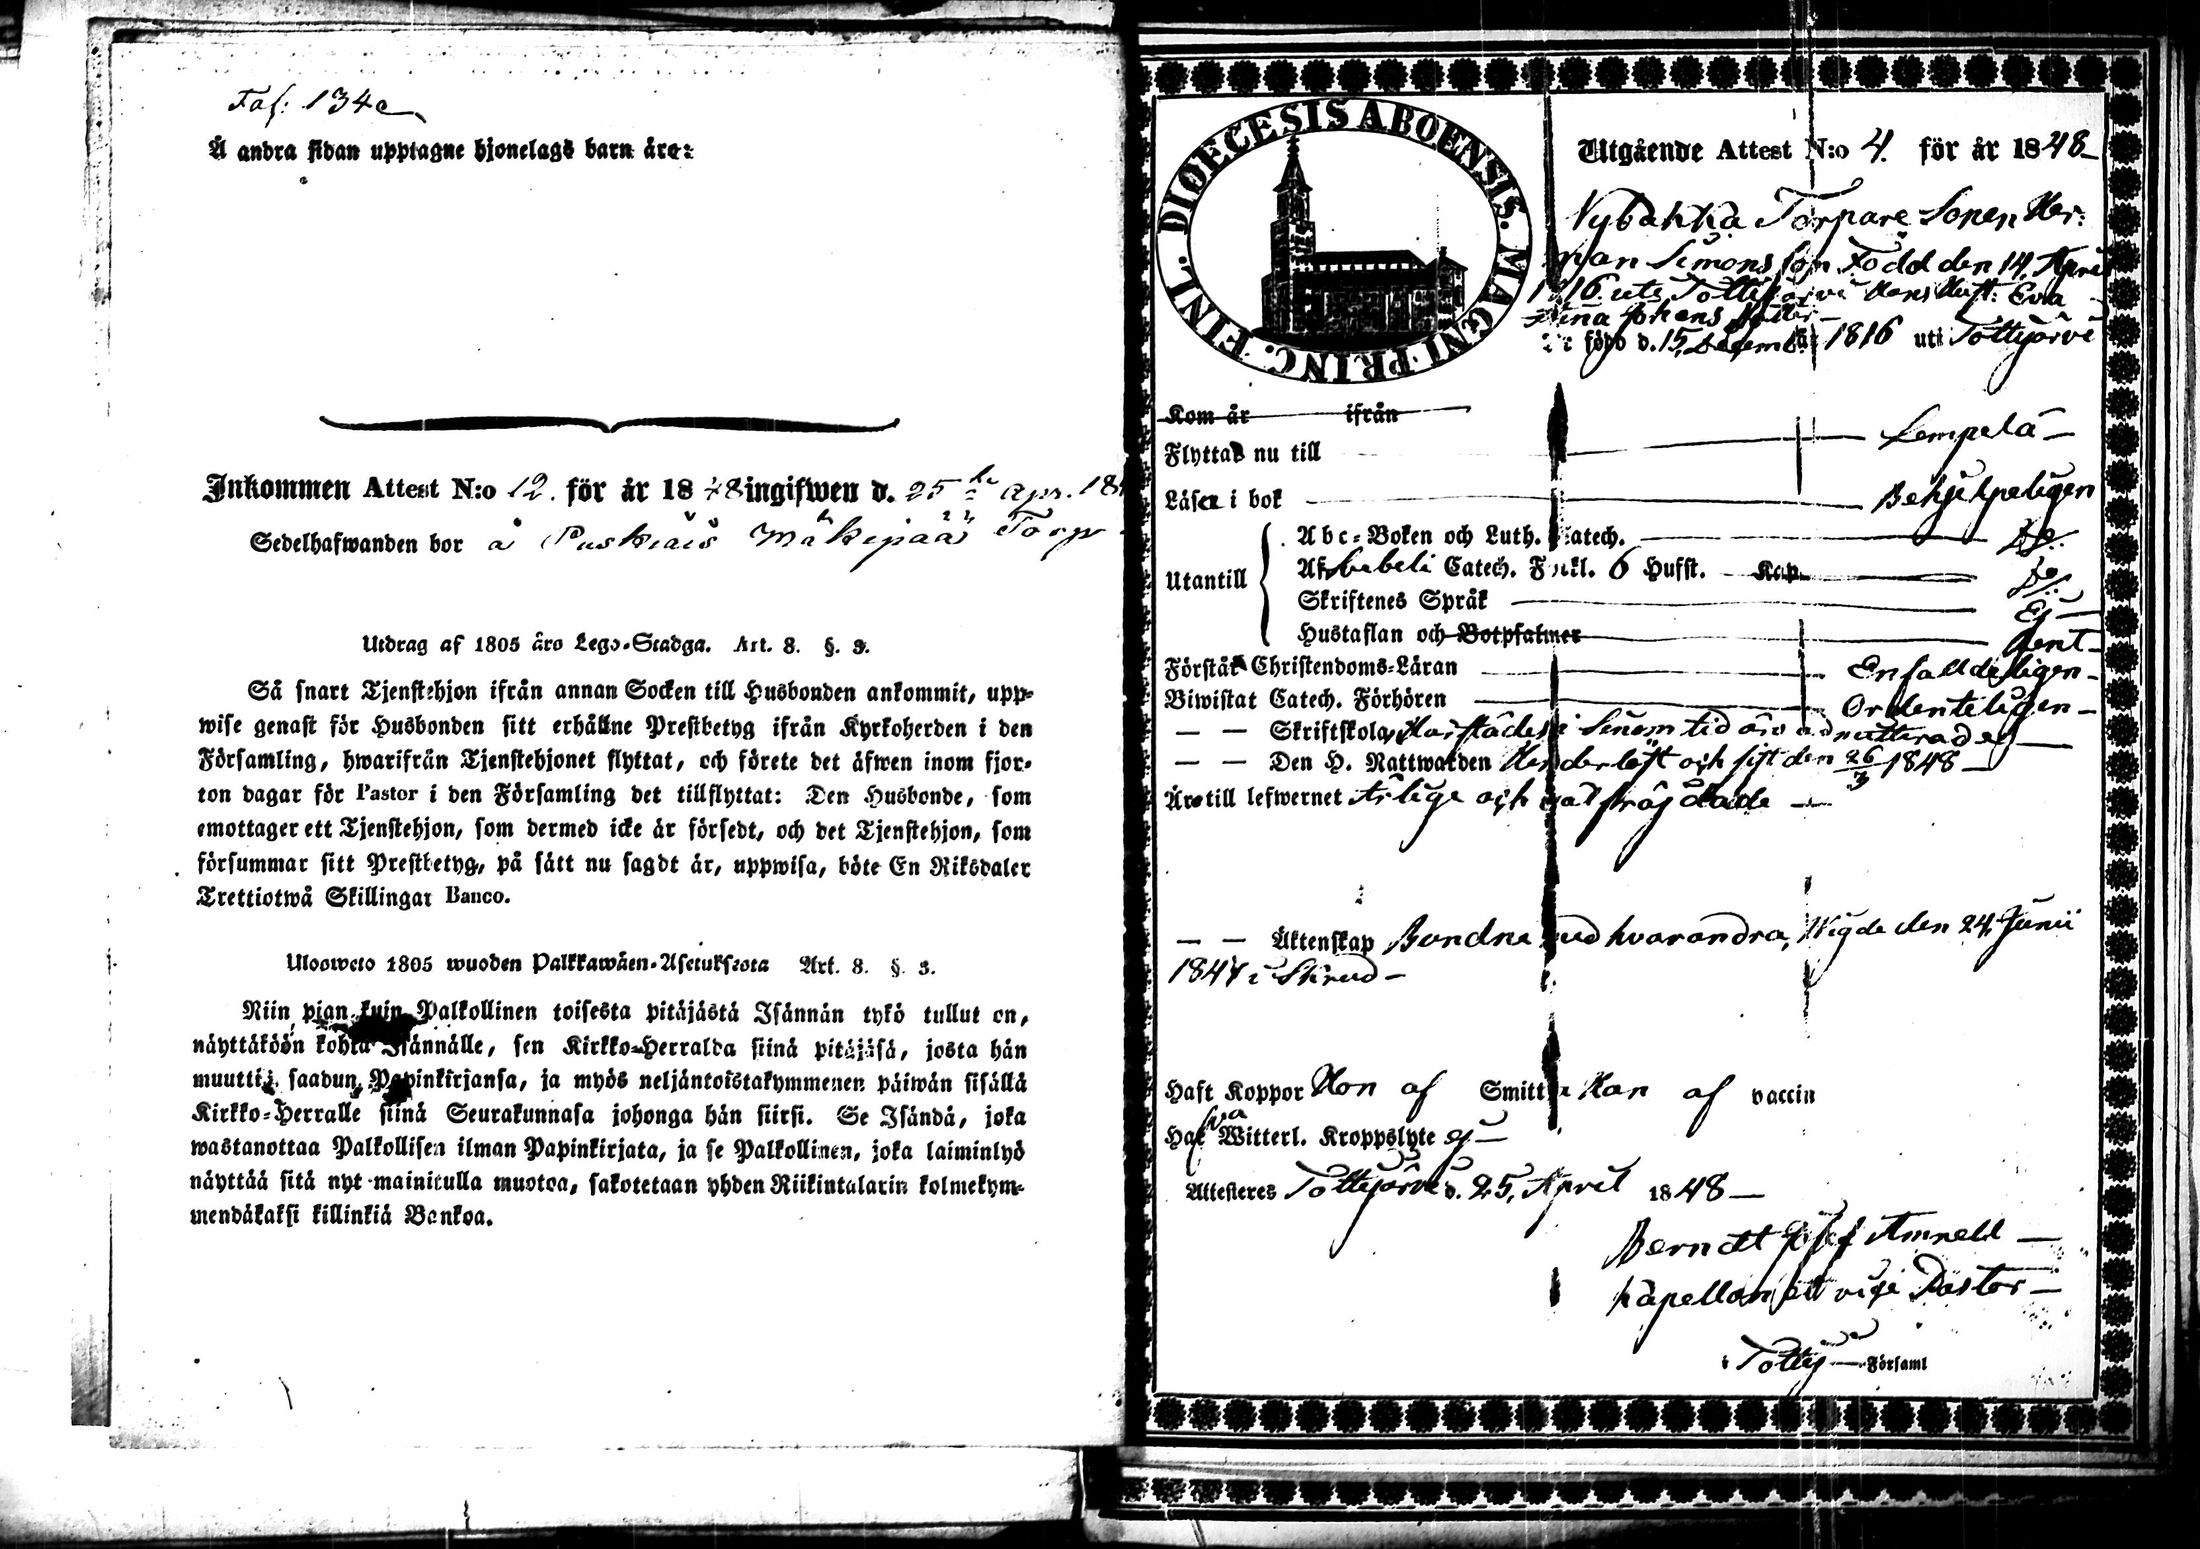 Fol: 134 c
Å andra sidan upptagne hjonelags barn äro:
Inkommen Attest N:o 12. för år 1848 ingifwen d. 25 Apr. 18
Sedelhafwanden bor å Puskiais Mäkipää Torp
Utdrag af 1805 års Lego-Stadga. Art. 8. §. 3.
Så snart Tjenstehjon ifrån annan Socken till Husbonden ankommit, upp-
wise genast för Husbonden sitt erhållne Prestbetyg ifrån Kyrkoherden i den
Församling, hwarifrån Tjenstehjonet flyttat, och förete det äfwen inom fjor-
ton dagar för Pastor i den Församling det tillflyttat: Den Husbonde, som
emottager ett Tjenstehjon, som dermed icke är försedt, och det Tjenstehjon, som
försummar sitt Prestbetyg, på sätt nu sagdt är, uppwisa, böte En Riksdaler
Trettiotwå Skillingar Banco.
Ulosweto 1805 wuoden Palkkawäen-Asetuksesta Art. 8. §. 3.
Niin pian kuin Palkollinen toisesta pitäjästä Isännän tykö tullut on,
näyttäköön kohta Isännälle, sen Kirkko-Herralda siinä pitäjäsä, josta hän
muutti, saadun Papinkirjansa, ja myös neljäntoistakymmenen päiwän sisällä
Kirkko-Herralle siinä Seurakunnasa johonga hän siirsi. Se Isändä, joka
wastanottaa Palkollisen ilman Papinkirjata, ja se Palkollinen, joka laiminlyö
näyttää sitä nyt mainitulla muotoa, sakotetaan yhden Riikintalarin kolmekym-
mendäkaksi killinkiä Bankoa.
DIOECESIS ABOENSIS. MAGNI PRINC. FINL.
Utgående Attest N:o 4. för år 1848
Nybakka Torpare Sonen Her-
man Simonsson Född den 14 April
1816 uti Tottijärvi Hans Hust: Eva
Stina Johans dotter
är född d. 15 Decemb. år 1816 uti Tottijärvi
Kom år ifrån
Flyttas nu till Lempelä
Läser i bok Behjelpeligen
Utantill
Abc-Boken och Luth. Catech. Do.
Af Svebeli Catech. Förkl. 6 Hufst. Kap. Do.
Skriftenes Språk Ej
Hustaflan och Botpsalmer Rent
Förstår Christendoms-Läran Enfalldeligen
Biwistat Catech. Förhören Ordenteligen
— — Skriftskola, Hafstädes i Sinom tid äro admitterades
— — Den H. Nattwarden Händerlöst och sist den 26/3 1848
Äro till lefwernet Ärlige och väl fräjdade
— — Äktenskap Bundne med hvarandra, Wigde den 24, Junii
1847 i Skrud
Haft Koppor Hon af Smitta Han af vaccin
Hafva Witterl. Kroppslyte ej
Attesteres Tottijärvi d. 25, April 1848
Berndt Josef Amnell
Kapellan att vice Pastor
i Tottij Församl